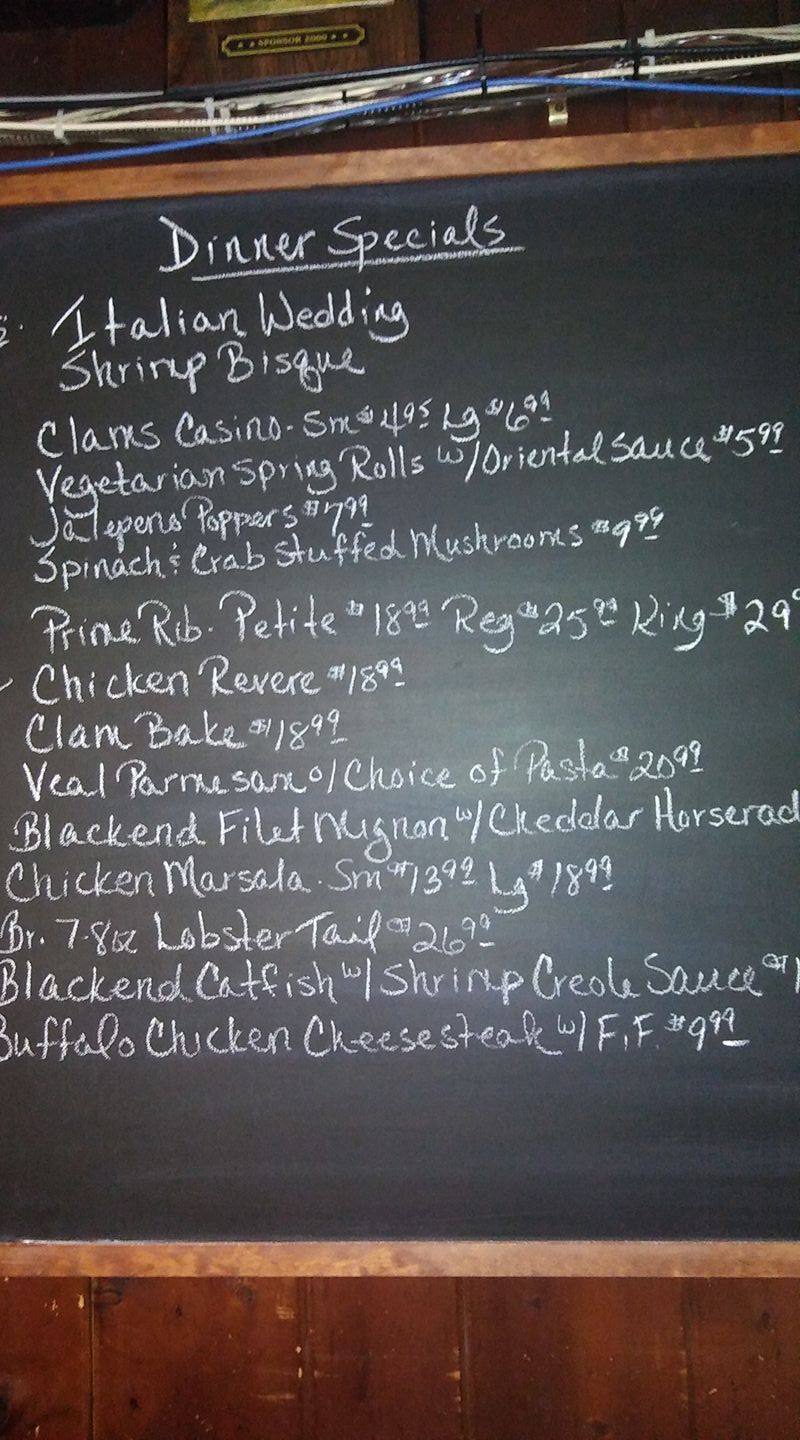 SPONSOR 2000
Dinner Specials
Italian Wedding
Shrimp Bisque
Clams Casino. Sm $4.95 Lg $6.99
Vegetarian Spring Rolls w/Oriental Sauce $5.99
Jalepeno Poppers $7.99
Spinach & Crab Stuffed Mushrooms $9.99
Prime Rib. Petite $18.99 Reg $25.99 King $29
Chicken Revere $18.99
Clam Bake $18.99
Veal Parmesan w/Choice of Pasta $20.99
Blackend Filet Mignon w/Cheddar Horserad
Chicken Marsala. Sm $13.99 Lg $18.99
Br. 7-8oz Lobster Tail $26.99
Blackend Catfish w/Shrimp Creole Sauce $1
Buffalo Chicken Cheesesteak w/F.F. $9.99